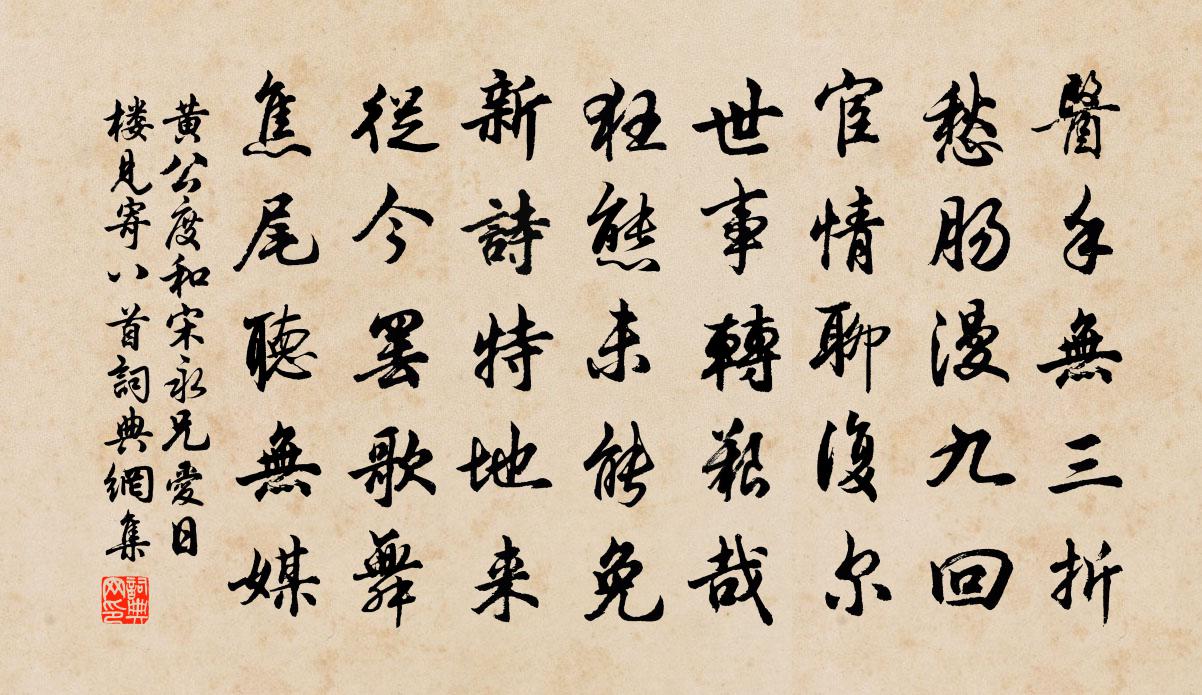 醫手無三折
愁腸漫九回
宦情聊復尔
世事轉艱哉
狂態未能免
新詩特地来
從今罢歌舞
焦尾聽無媒
黄公度和宋永兄愛日
楼見寄八首詞典網集
詞典网印